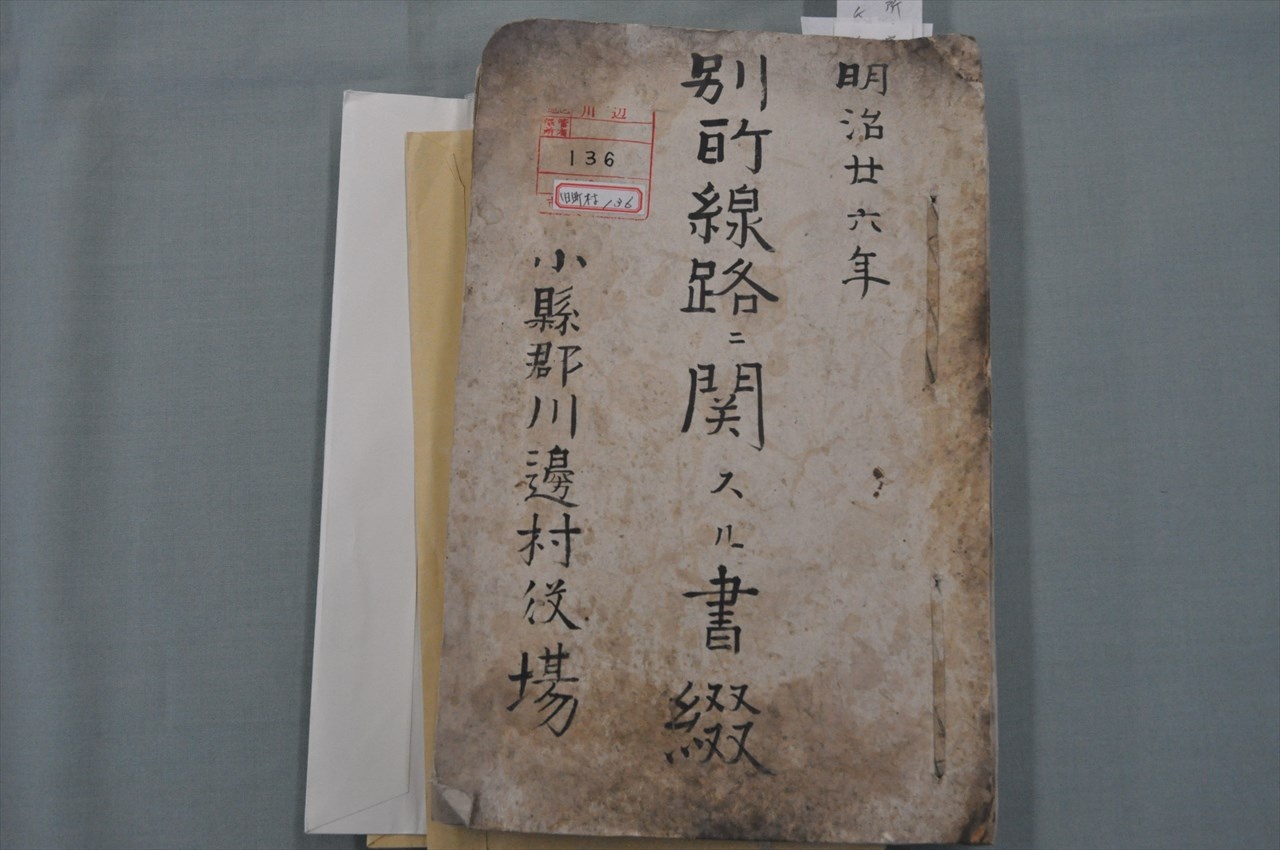 明治廿六年
別所線路ニ関スル書綴
小縣郡川邊村役場
川辺
136
旧町村136